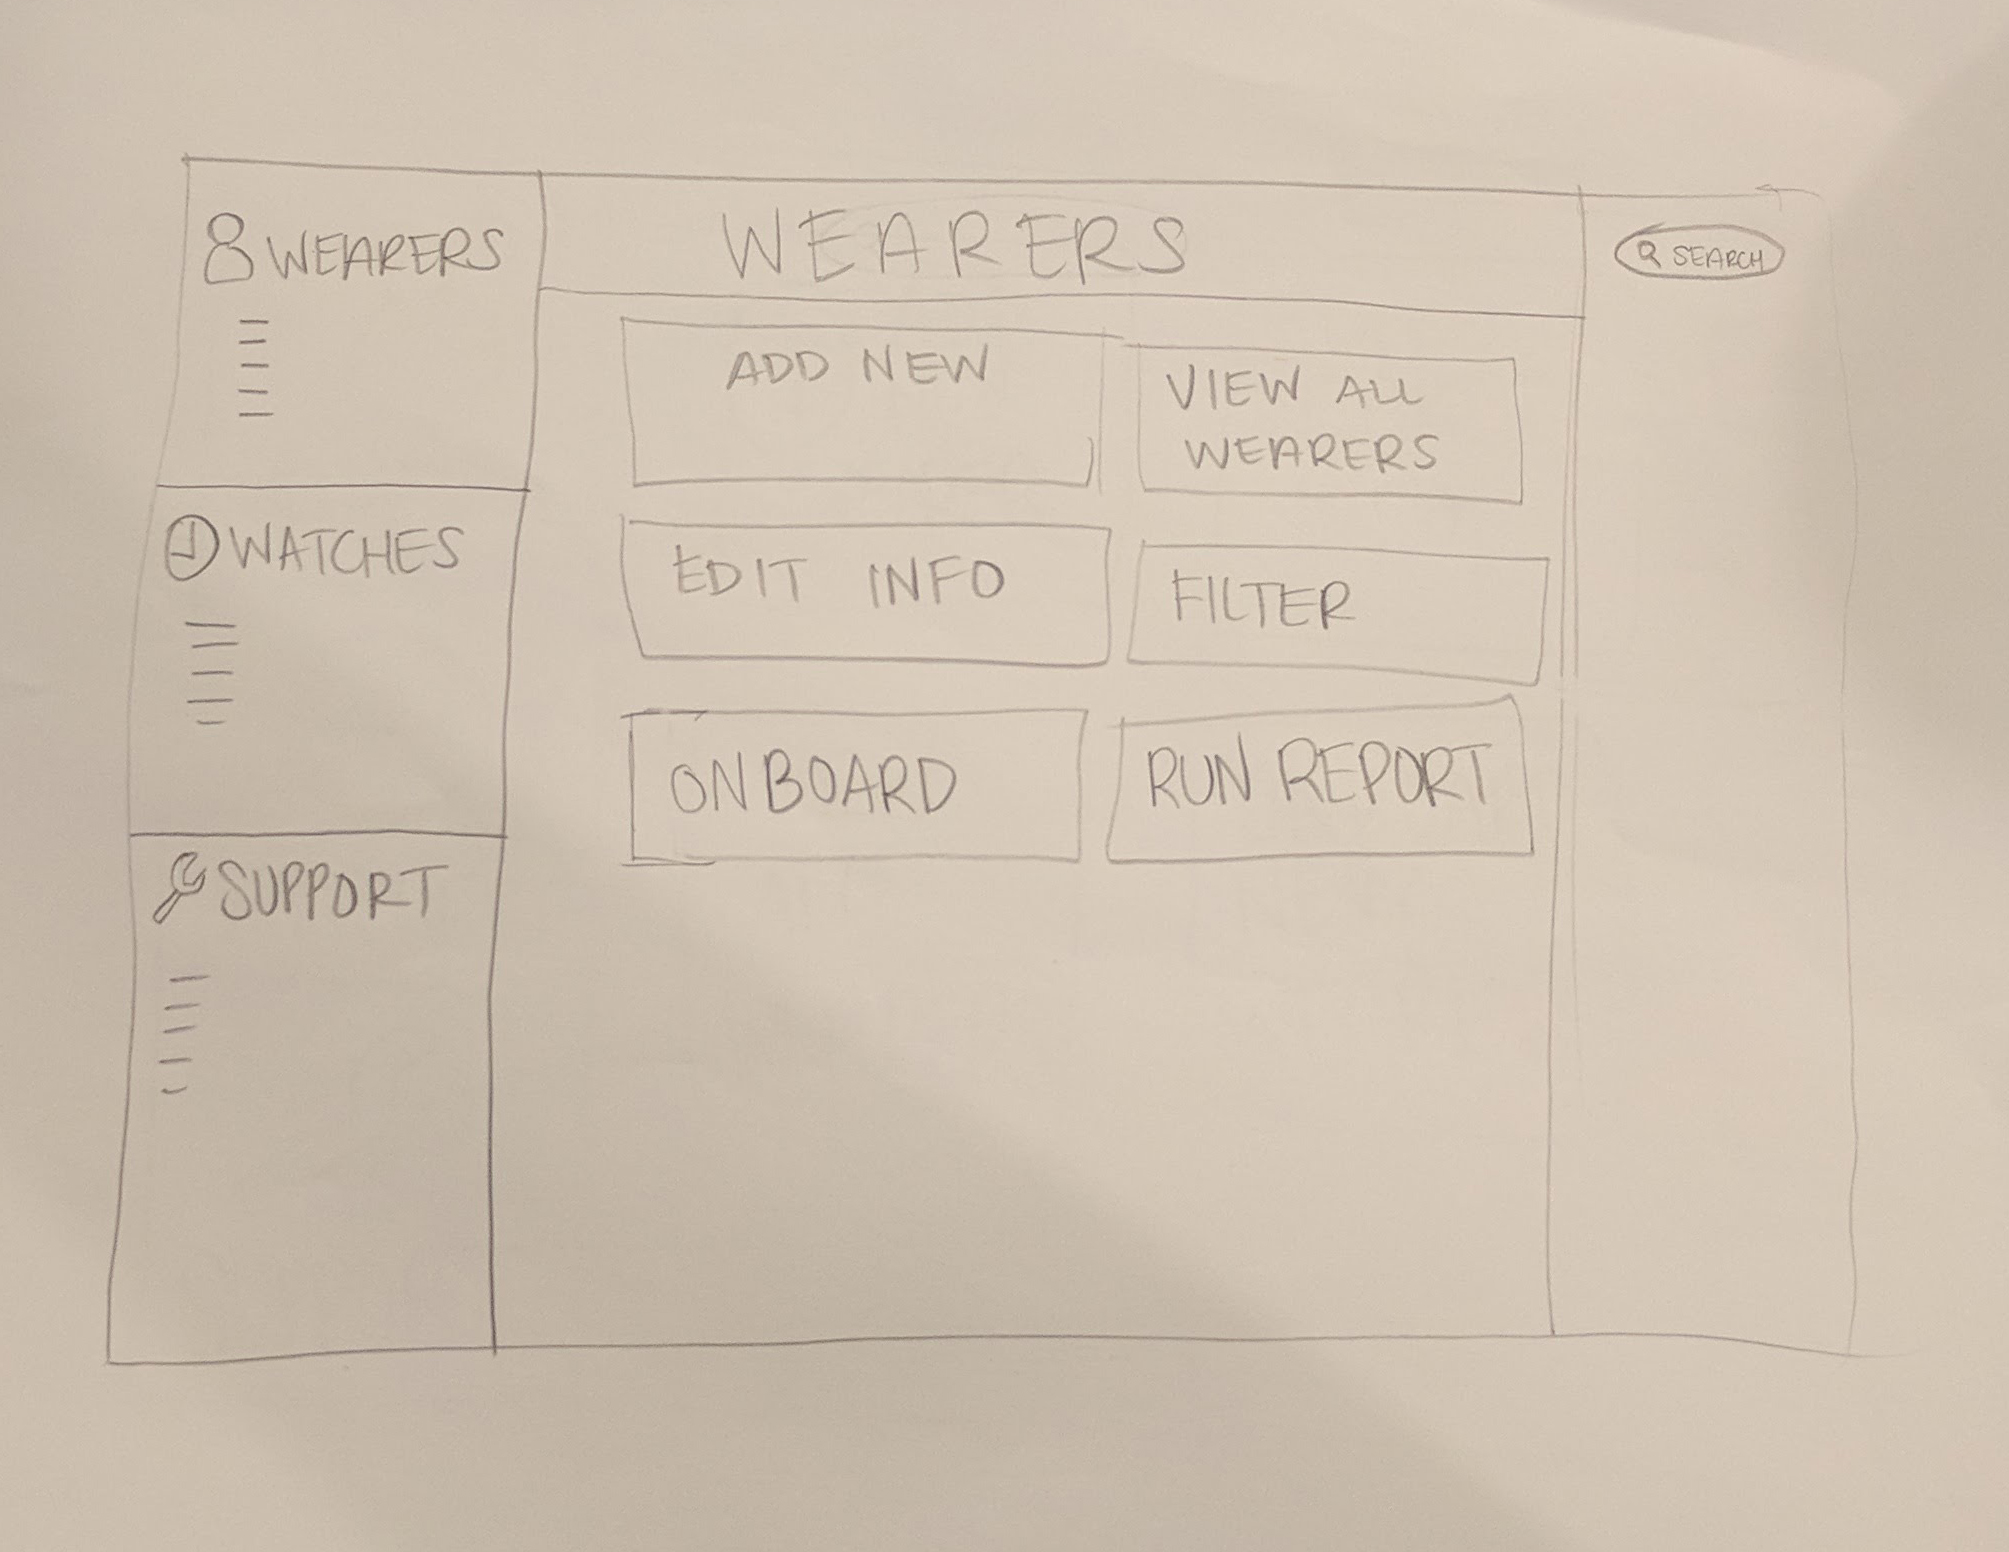 WEARERS
WATCHES
SUPPORT
WEARERS
ADD NEW
VIEW ALL
WEARERS
EDIT INFO
FILTER
ONBOARD
RUN REPORT
SEARCH